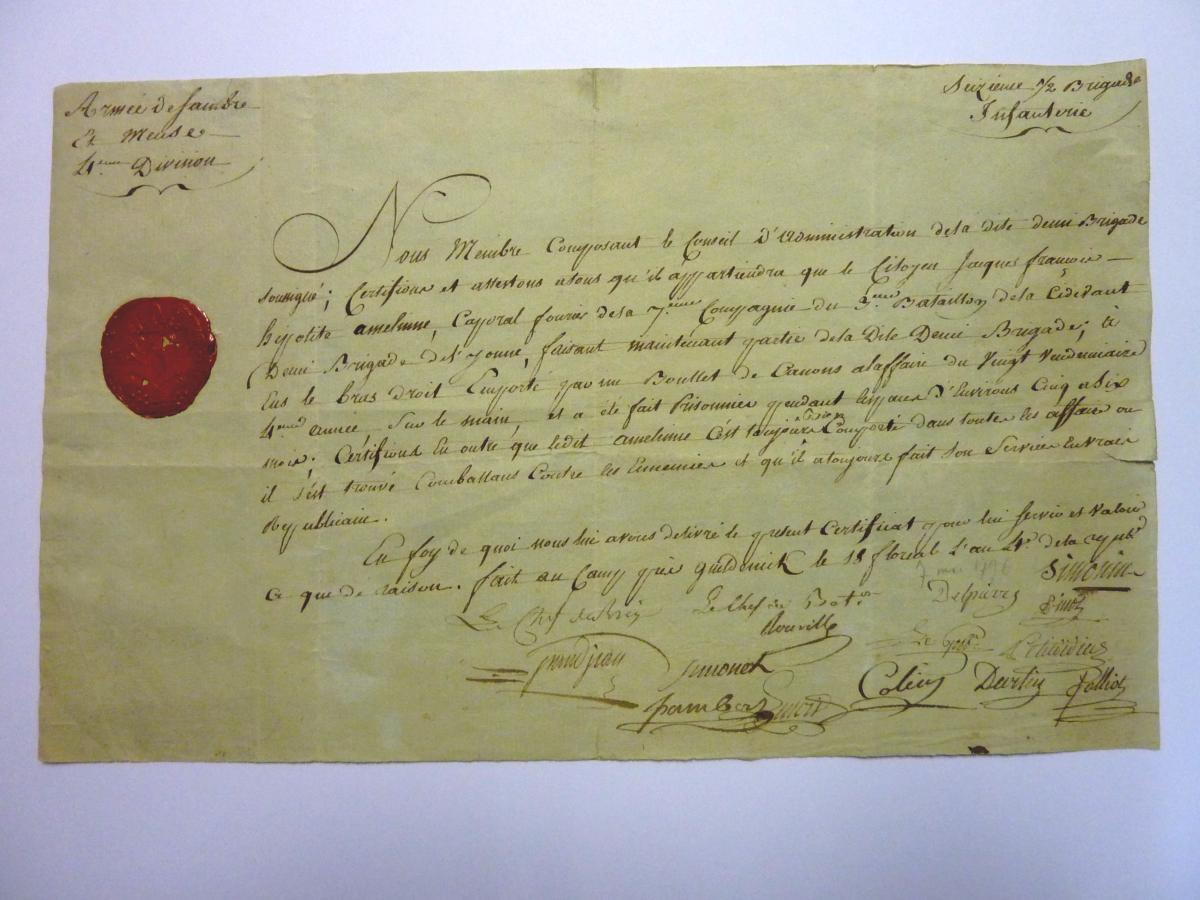 Armée de Sambre
Et Meuse
4eme Division
Seizieme 1/2 Brigade
Infanterie
Nous Membre Composant le Conseil D'administration dela dite demi Brigade
soussigné; Certifions et attestons atous qu'il appartiendra que le Citoyen Jacques françois
hypolite amelinne, Caporal fourier dela 7.eme Compagnie du 3.eme Bataillon dela Cidevant
Demi Brigade de l'yonne, faisant maintenant partie dela Dite Demi Brigade; à
Eus le bras droit Emporté par un Boullet de Canons alaffaire du Vingt Vendemiaire
4eme année Sur le mein, et a été fait Prisonnier pendant lespace d'Environs Cinq a Six
mois; Certifions En outre que ledit amelinne C'est toujours bien Comporté dans toutes les affaire ou
il s'est trouvé Combattans Contre les Ennemies et qu'il atoujours fait son Service En vrais
Republicain.
En foy de quoi nous lui avons delivré le present Certificat pour lui servir et Valoir
ce que de raison. fait au Camp près le 18 floreal l'an 4e. dela repubd
7 mai 1796
Simonin
Le Chef de
Le Chef de Bat.on
Delpierre
Simonet
Le
Colin